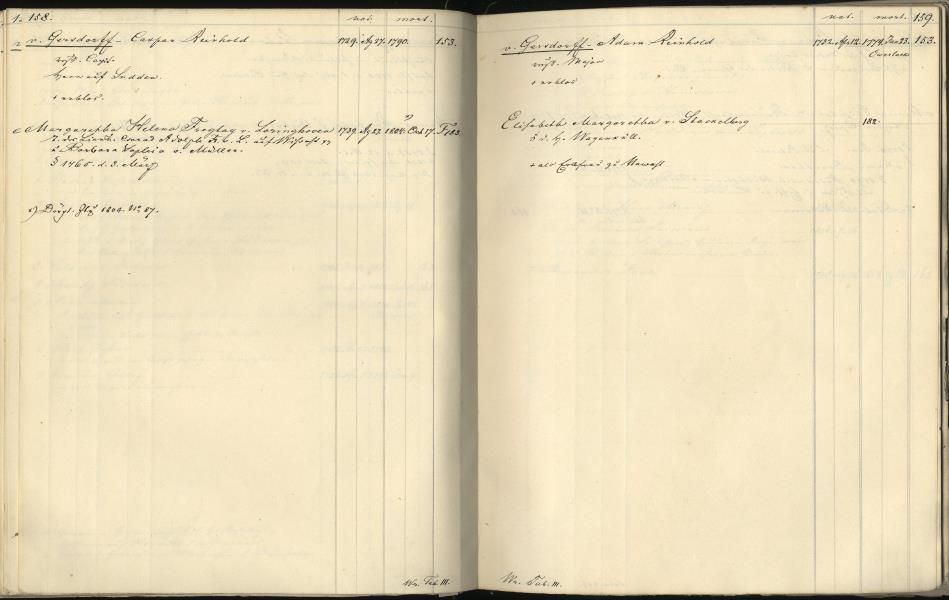 1. 158. nat. mort.
v. Gersdorff - Caspar Reinhold 1729. 27. 1790. 153.
russ. Capt.
Herr auf Sudden.
+ erblos.
Margaretha Helena Freytag v. Loringhoven 1739. 23. 1804. Oct. 17. Fr.
T. des Conrad Adolph Fr. v. L. auf
u. Barbara Sophia v. Müller.
§ 1765. d. 3. März
Dörpt. Ztg 1804. No 87.
Wr. Tab. III.
nat. mort. 159.
v. Gersdorff - Adam Reinhold 1732. Apr. 12. 1774. Jan. 23. 153.
russ. Major
+ erblos
Elisabeth Margaretha v. Stackelberg 182.
§ v. H. Wagenküll.
+ als Erbfrau zu Nawast
Wr. Tab. III.